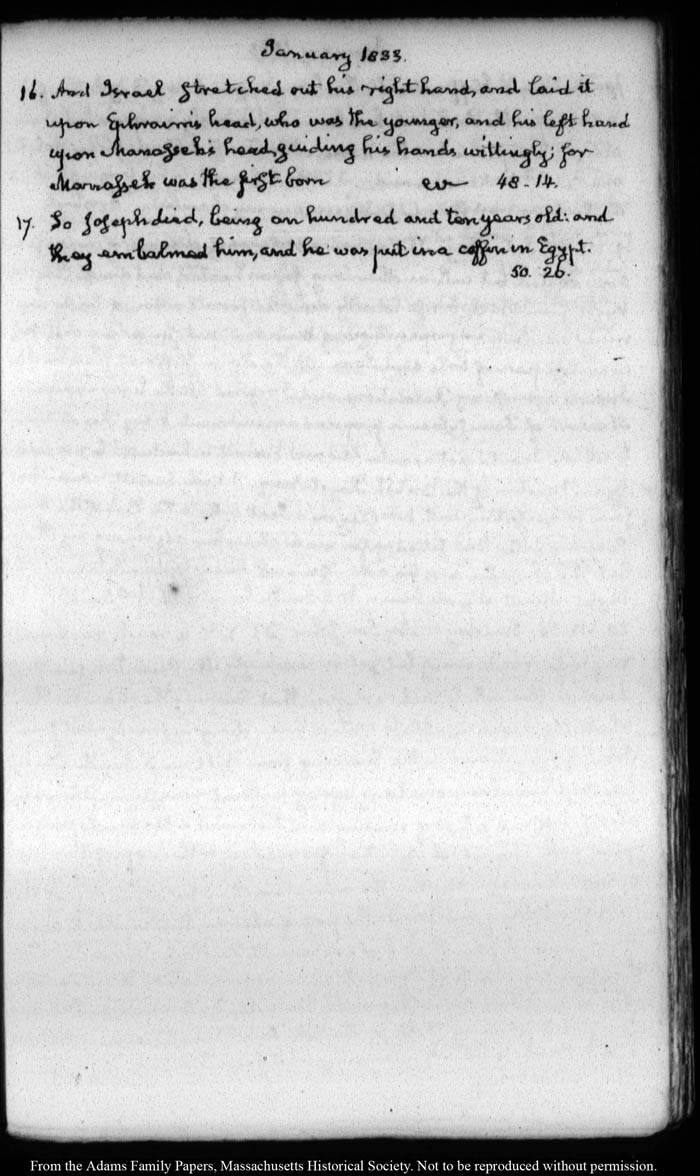 January 1833.
16. And Israel stretched out his right hand, and laid it
upon Ephraim's head, who was the younger, and his left hand
upon Manasseh's head, guiding his hands wittingly; for
Manasseh was the first born 48-14.
17. So Joseph died, being an hundred and ten years old: and
they embalmed him, and he was put in a coffin in Egypt.
50. 26.
From the Adams Family Papers, Massachusetts Historical Society. Not to be reproduced without permission.